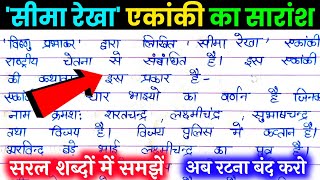 'सीमा रेखा' एकांकी का सारांश
'विष्णु प्रभाकर' द्वारा लिखित 'सीमा रेखा' एकांकी
राष्ट्रीय चेतना से संबंधित है। इस एकांकी
की कथा इस प्रकार है-
एकां चार भाइयो का वर्णन है जिनक
नाम क्रमशः शरतचन्द्र, लक्ष्मीचंद्र, सुभाषचन्द्र
तथा विजय है। विजय पुलिस में कप्तान है।
अरविन्द बड़े भाई लक्ष्मीचन्द्र का पुत्र है।
सरल शब्दों में समझें
अब रटना बंद करो